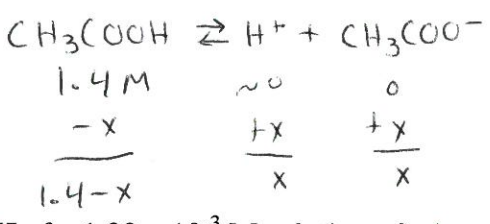 CH₃COOH ⇄ H⁺ + CH₃COO⁻
1.4 M ~0 0
-x +x +x
1.4-x x x